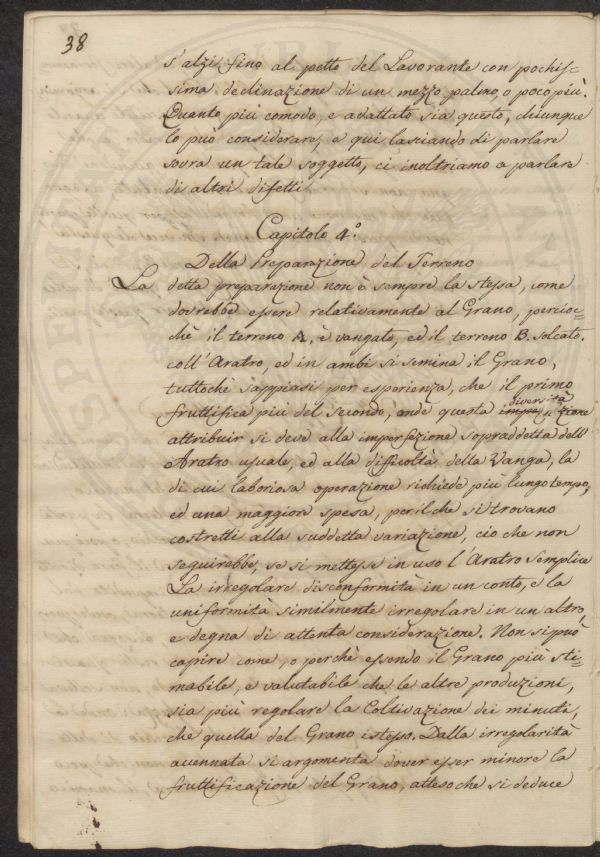 38
s'alzi fino al petto del Lavorante con pochis-
sima declinazione di un mezzo palmo, o poco più.
Quanto più comodo, e adattato sia questo, chiunque
lo può considerare, e qui lasciando di parlare
sovra un tale soggetto, ci inoltriamo a parlare
di altri difetti
Capitolo 4°.
Della Preparazione del Terreno
La detta preparazione non è sempre la stessa, come
dovrebbe essere relativamente al Grano, percioc=
chè il terreno A. è vangato, ed il terreno B. solcato.
coll'Aratro, ed in ambi si semina il Grano,
tuttochè sappiasi per esperienza, che il primo
fruttifica più del secondo, onde questa diversità
attribuir si deve alla imperfezione sopraddetta dell'
Aratro usuale, ed alla difficoltà della Vanga, la
di cui laboriosa operazione richiede più lungo tempo,
ed una maggiore spesa, per il che si trovano
costretti alla suddetta variazione, cio che non
seguirebbe, se si mettesse in uso l'Aratro semplice
La irregolare disconformità in un conto, e la
uniformità similmente irregolare in un altro,
e degna di attenta considerazione. Non si può
capire come, o perchè essendo il Grano più sti=
mabile, e valutabile che le altre produzioni,
sia più regolare la Coltivazione dei minuti,
che quella del Grano istesso. Dalla irregolarità
avennata si argomenta dover esser minore la
fruttificazione del Grano, atteso che si deduce